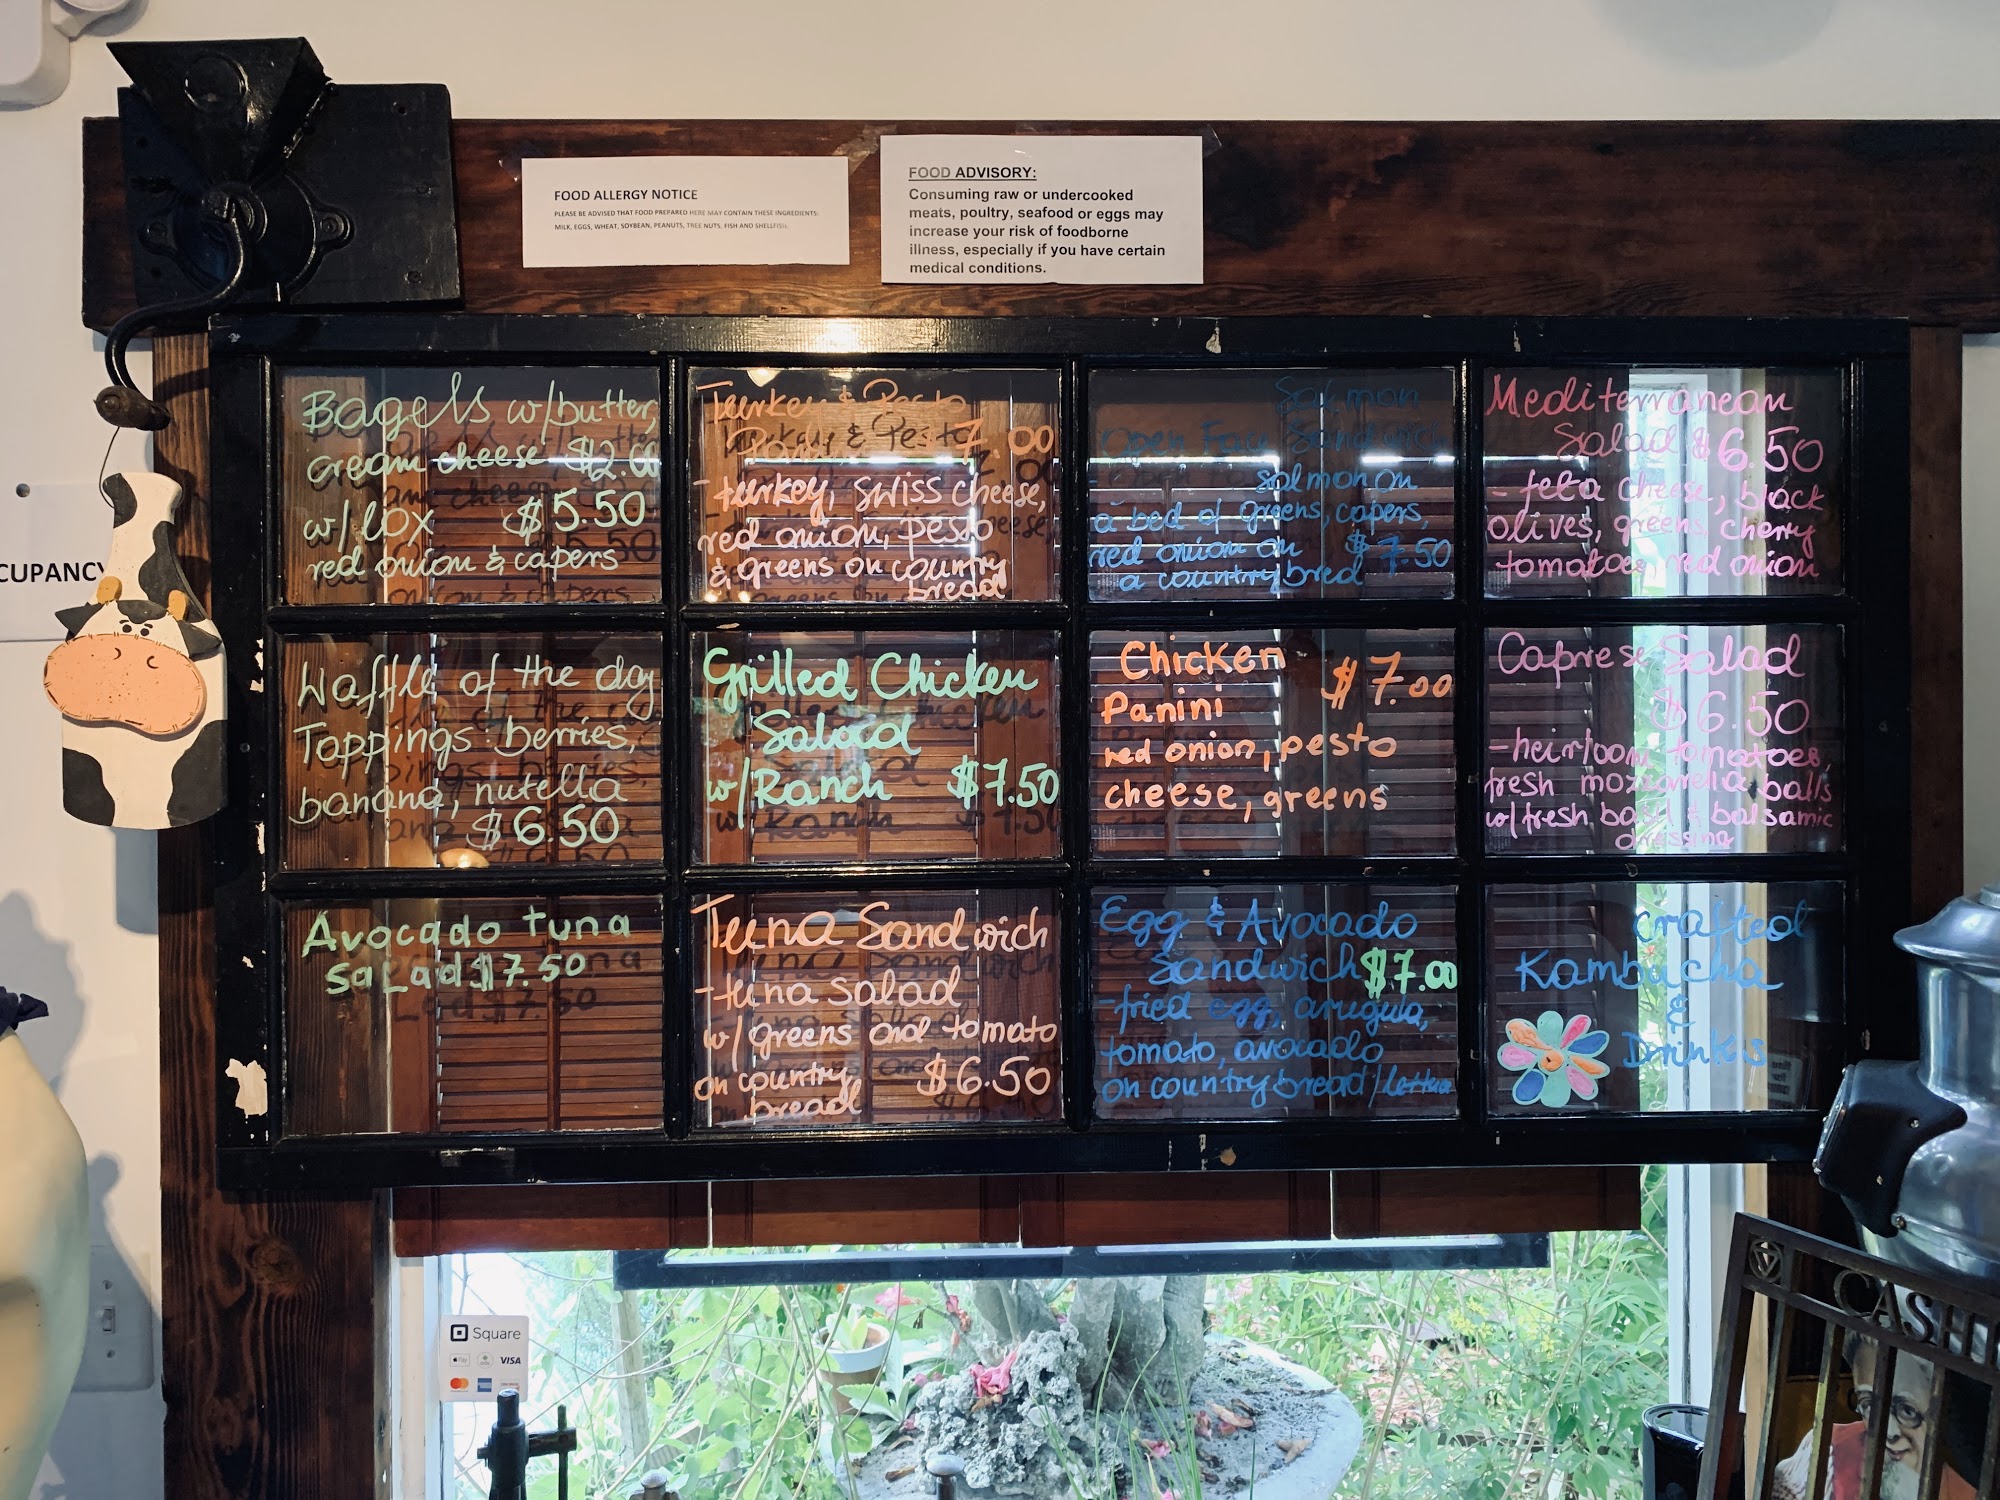 FOOD ALLERGY NOTICE
PLEASE BE ADVISED THAT FOOD PREPARED HERE MAY CONTAIN THESE INGREDIENTS:
MILK, EGGS, WHEAT, SOYBEAN, PEANUTS, TREE NUTS, FISH AND SHELLFISH.
FOOD ADVISORY:
Consuming raw or undercooked
meats, poultry, seafood or eggs may
increase your risk of foodborne
illness, especially if you have certain
medical conditions.
CUPANCY
Bagels w/butter,
cream cheese $2.00
w/lox $5.50
red onion & capers
Turkey & Pesto
$7.00
- turkey, swiss cheese,
red onion, pesto
& greens on country
bread
Salmon
Open Face Sandwich
- salmon on
a bed of greens, capers,
red onion on $7.50
a country bred
Mediterranean
Salad $6.50
- feta cheese, black
olives, greens, cherry
tomatoes, red onion
Waffle of the day
Toppings: berries,
banana, nutella
$6.50
Grilled Chicken
Salad
w/Ranch $7.50
Chicken $7.00
Panini
red onion, pesto
cheese, greens
Caprese Salad
$6.50
- heirloom tomatoes,
fresh mozzarella balls
w/fresh basil & balsamic
dressing
Avocado tuna
salad $7.50
Tuna Sandwich
- tuna salad
w/greens and tomato
on country $6.50
bread
Egg & Avocado
Sandwich $7.00
- fried egg, arugula,
tomato, avocado
on country bread/lettuce
Crafted
Kambucha
&
Drinks
Square
Pay
VISA
CASH